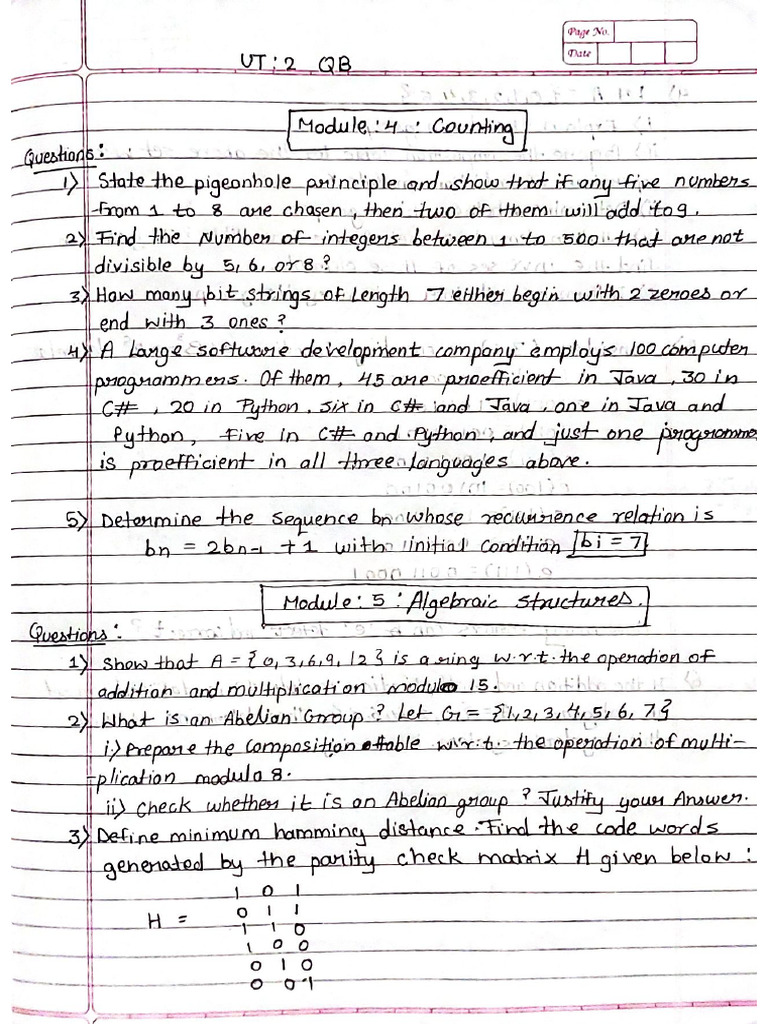 Page No.
Date
UT: 2 QB
Module: 4 : Counting
Questions:
1) State the pigeonhole principle and show that if any five numbers
from 1 to 8 are chosen, then two of them will add to 9.
2) Find the Number of integers between 1 to 500 that are not
divisible by 5, 6, or 8?
3) How many bit strings of Length 7 either begin with 2 zeroes or
end with 3 ones?
4) A Large software development company employs 100 computer
programmers. Of them, 45 are proefficient in Java, 30 in
C#, 20 in Python, six in C# and Java, one in Java and
Python, Five in C# and Python, and just one programme
is proefficient in all three languages above.
5) Determine the sequence bn whose recurrence relation is
bn = 2bn-1 + 1 with initial condition bi = 7
Module: 5 : Algebraic structures.
Questions:
1) Show that A = {0, 3, 6, 9, 12} is a ring w.r.t. the operation of
addition and multiplication modulo 15.
2) What is an Abelian Group? Let G = {1, 2, 3, 4, 5, 6, 7}
i) Prepare the composition table w.r.t. the operation of multi-
-plication modulo 8.
ii) Check whether it is an Abelian group? Justify your Answer.
3) Define minimum hamming distance. Find the code words
generated by the parity check matrix H given below:
1 0 1
H = 0 1 1
1 1 0
1 0 0
0 1 0
0 0 1